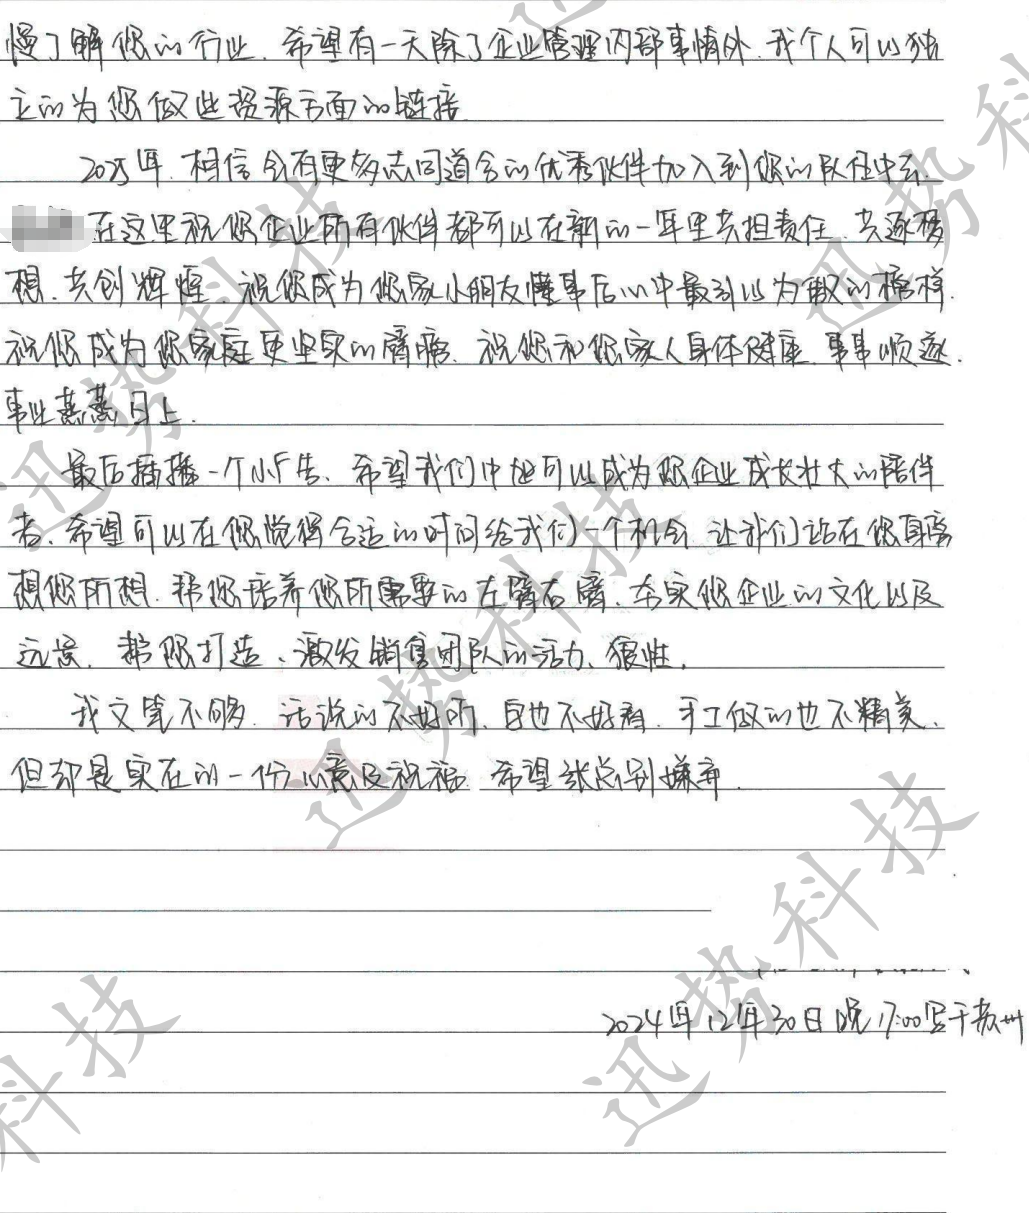 慢了解您的行业、希望有一天除了企业管理内部事情外、我个人可以独
立的为您做些资源方面的链接
2025年、相信会有更多志同道合的优秀伙伴加入到您的队伍中来、
在这里祝您企业所有伙伴都可以在新的一年里共担责任、共逐梦
想、共创辉煌、祝您成为您家小朋友懂事后心中最引以为傲的榜样、
祝您成为您家庭更坚实的臂膀、祝您和您家人身体健康、事事顺遂、
事业蒸蒸日上.
最后插播一个小广告、希望我们中旭可以成为您企业成长壮大的陪伴
者、希望可以在您觉得合适的时间给我们一个机会、让我们站在您身旁
想您所想、帮您培养您所需要的左臂右膀、夯实您企业的文化以及
远景、帮您打造、激发销售团队的活力、狼性.
我文笔不够、话说的不好听、字也不好看、手工做的也不精美、
但却是实在的一份心意及祝福、希望张总别嫌弃.
2024年12年30日晚17:00写于苏州
迅势科技
迅势科技
迅势科技
迅势科技
科技